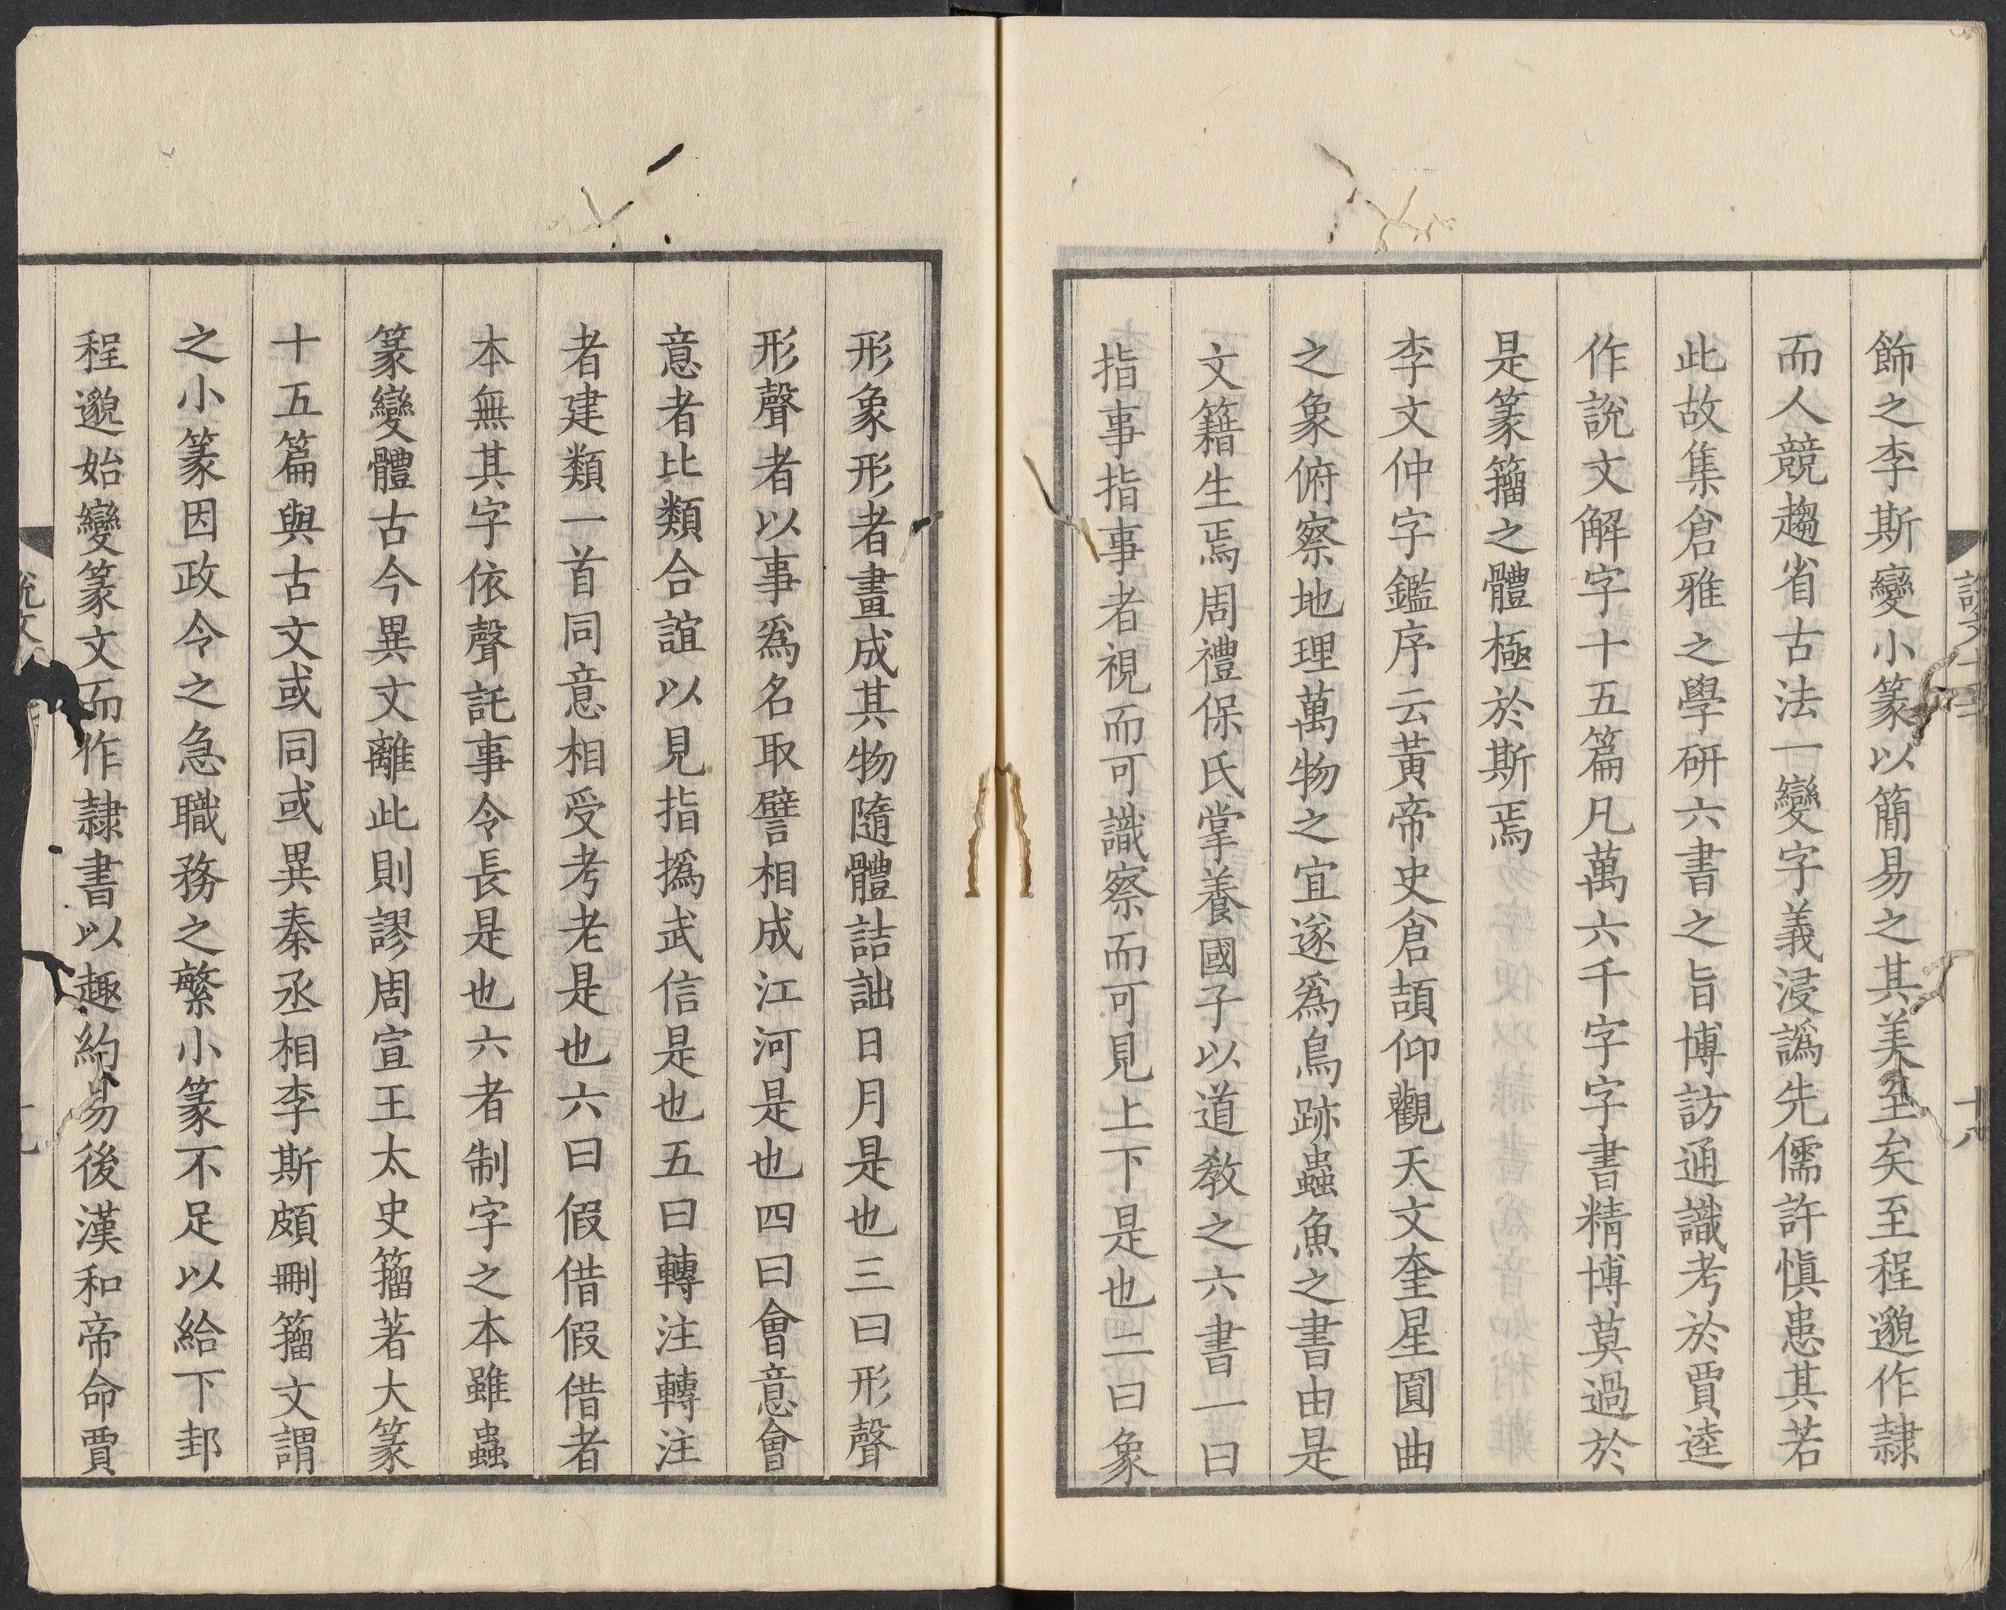 飾之李斯變小篆以簡易之其美至矣至程邈作隸
而人競趨省古法一變字義浸譌先儒許愼患其若
此故集倉雅之學研六書之旨博訪通識考於賈逵
作說文解字十五篇凡萬六千字字書精博莫過於
是篆籀之體極於斯焉
李文仲字鑑序云黃帝史倉頡仰觀天文奎星圓曲
之象俯察地理萬物之宜遂爲鳥跡蟲魚之書由是
文籍生焉周禮保氏掌養國子以道敎之六書一曰
指事指事者視而可識察而可見上下是也二曰象
十八
形象形者畫成其物隨體詰詘日月是也三曰形聲
形聲者以事爲名取譬相成江河是也四曰會意會
意者比類合誼以見指撝武信是也五曰轉注轉注
者建類一首同意相受考老是也六曰假借假借者
本無其字依聲託事令長是也六者制字之本雖蟲
篆變體古今異文離此則謬周宣王太史籀著大篆
十五篇與古文或同或異秦丞相李斯頗刪籀文謂
之小篆因政令之急職務之繁小篆不足以給下邽
程邈始變篆文而作隷書以趣約易後漢和帝命賈
說文